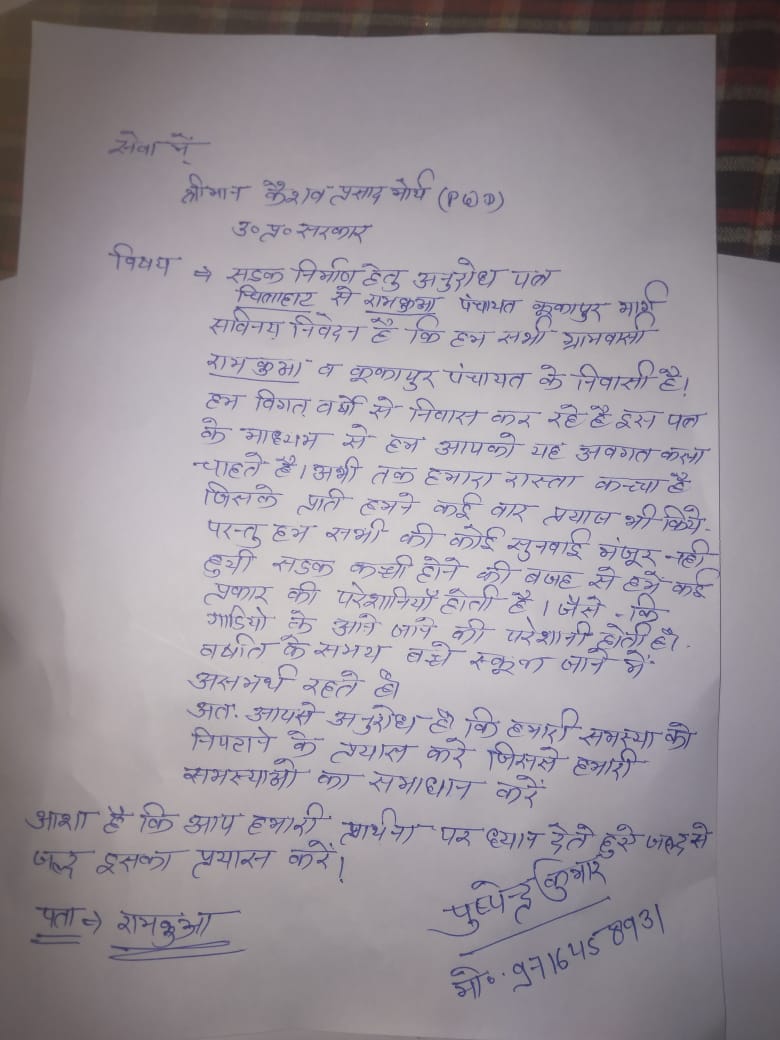 सेवा में
श्रीमान केशव प्रसाद मौर्य (PWD)
उ॰ प्र॰ सरकार
विषय ⇒ सडक निर्माण हेतु अनुरोध पत्र
चिताहाट से रामकुआ पंचायत कूकापुर मार्ग
सविनय निवेदन है कि हम सभी ग्रामवासी
रामकुआ व कूकापुर पंचायत के निवासी है।
हम विगत् वर्षो से निवास कर रहे है इस पत्र
के माध्यम से हम आपको यह अवगत करना
चाहते है। अभी तक हमारा रास्ता कच्चा है
जिसके प्रति हमने कई वार प्रयास भी किये
परन्तु हम सभी की कोई सुनवाई मंजूर नही
हुयी सडक कच्ची होने की बजह से हमे कई
प्रकार की परेशानियाँ होती है। जैसे - कि
गाडियो के आने जाने की परेशानी होती है।
वर्षात के समय बच्चे स्कूल जाने में
असमर्थ रहते है।
अतः आपसे अनुरोध है कि हमारी समस्या को
निपटाने के प्रयास करें जिससे हमारी
समस्याओ का समाधान करें
आशा है कि आप हमारी प्रार्थना पर ध्यान देते हुऐ जल्द से
जल्द इसका प्रयास करें।
पुष्पेन्द्र कुमार
पता ⇒ रामकुआ
मो॰ 9716458931